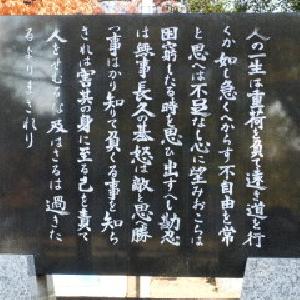 人の一生は重荷を負て遠き道を行
くか如し急くへからす不自由を常
と思へは不足なし心に望みおこらは
困窮したる時を思ひ出すへし勘忍
は無事長久の基怒は敵と思へ勝
つ事はかり知りて負くる事を知ら
されは害其の身に至る己を責て
人をせむるな及はさるは過きた
るよりまされり